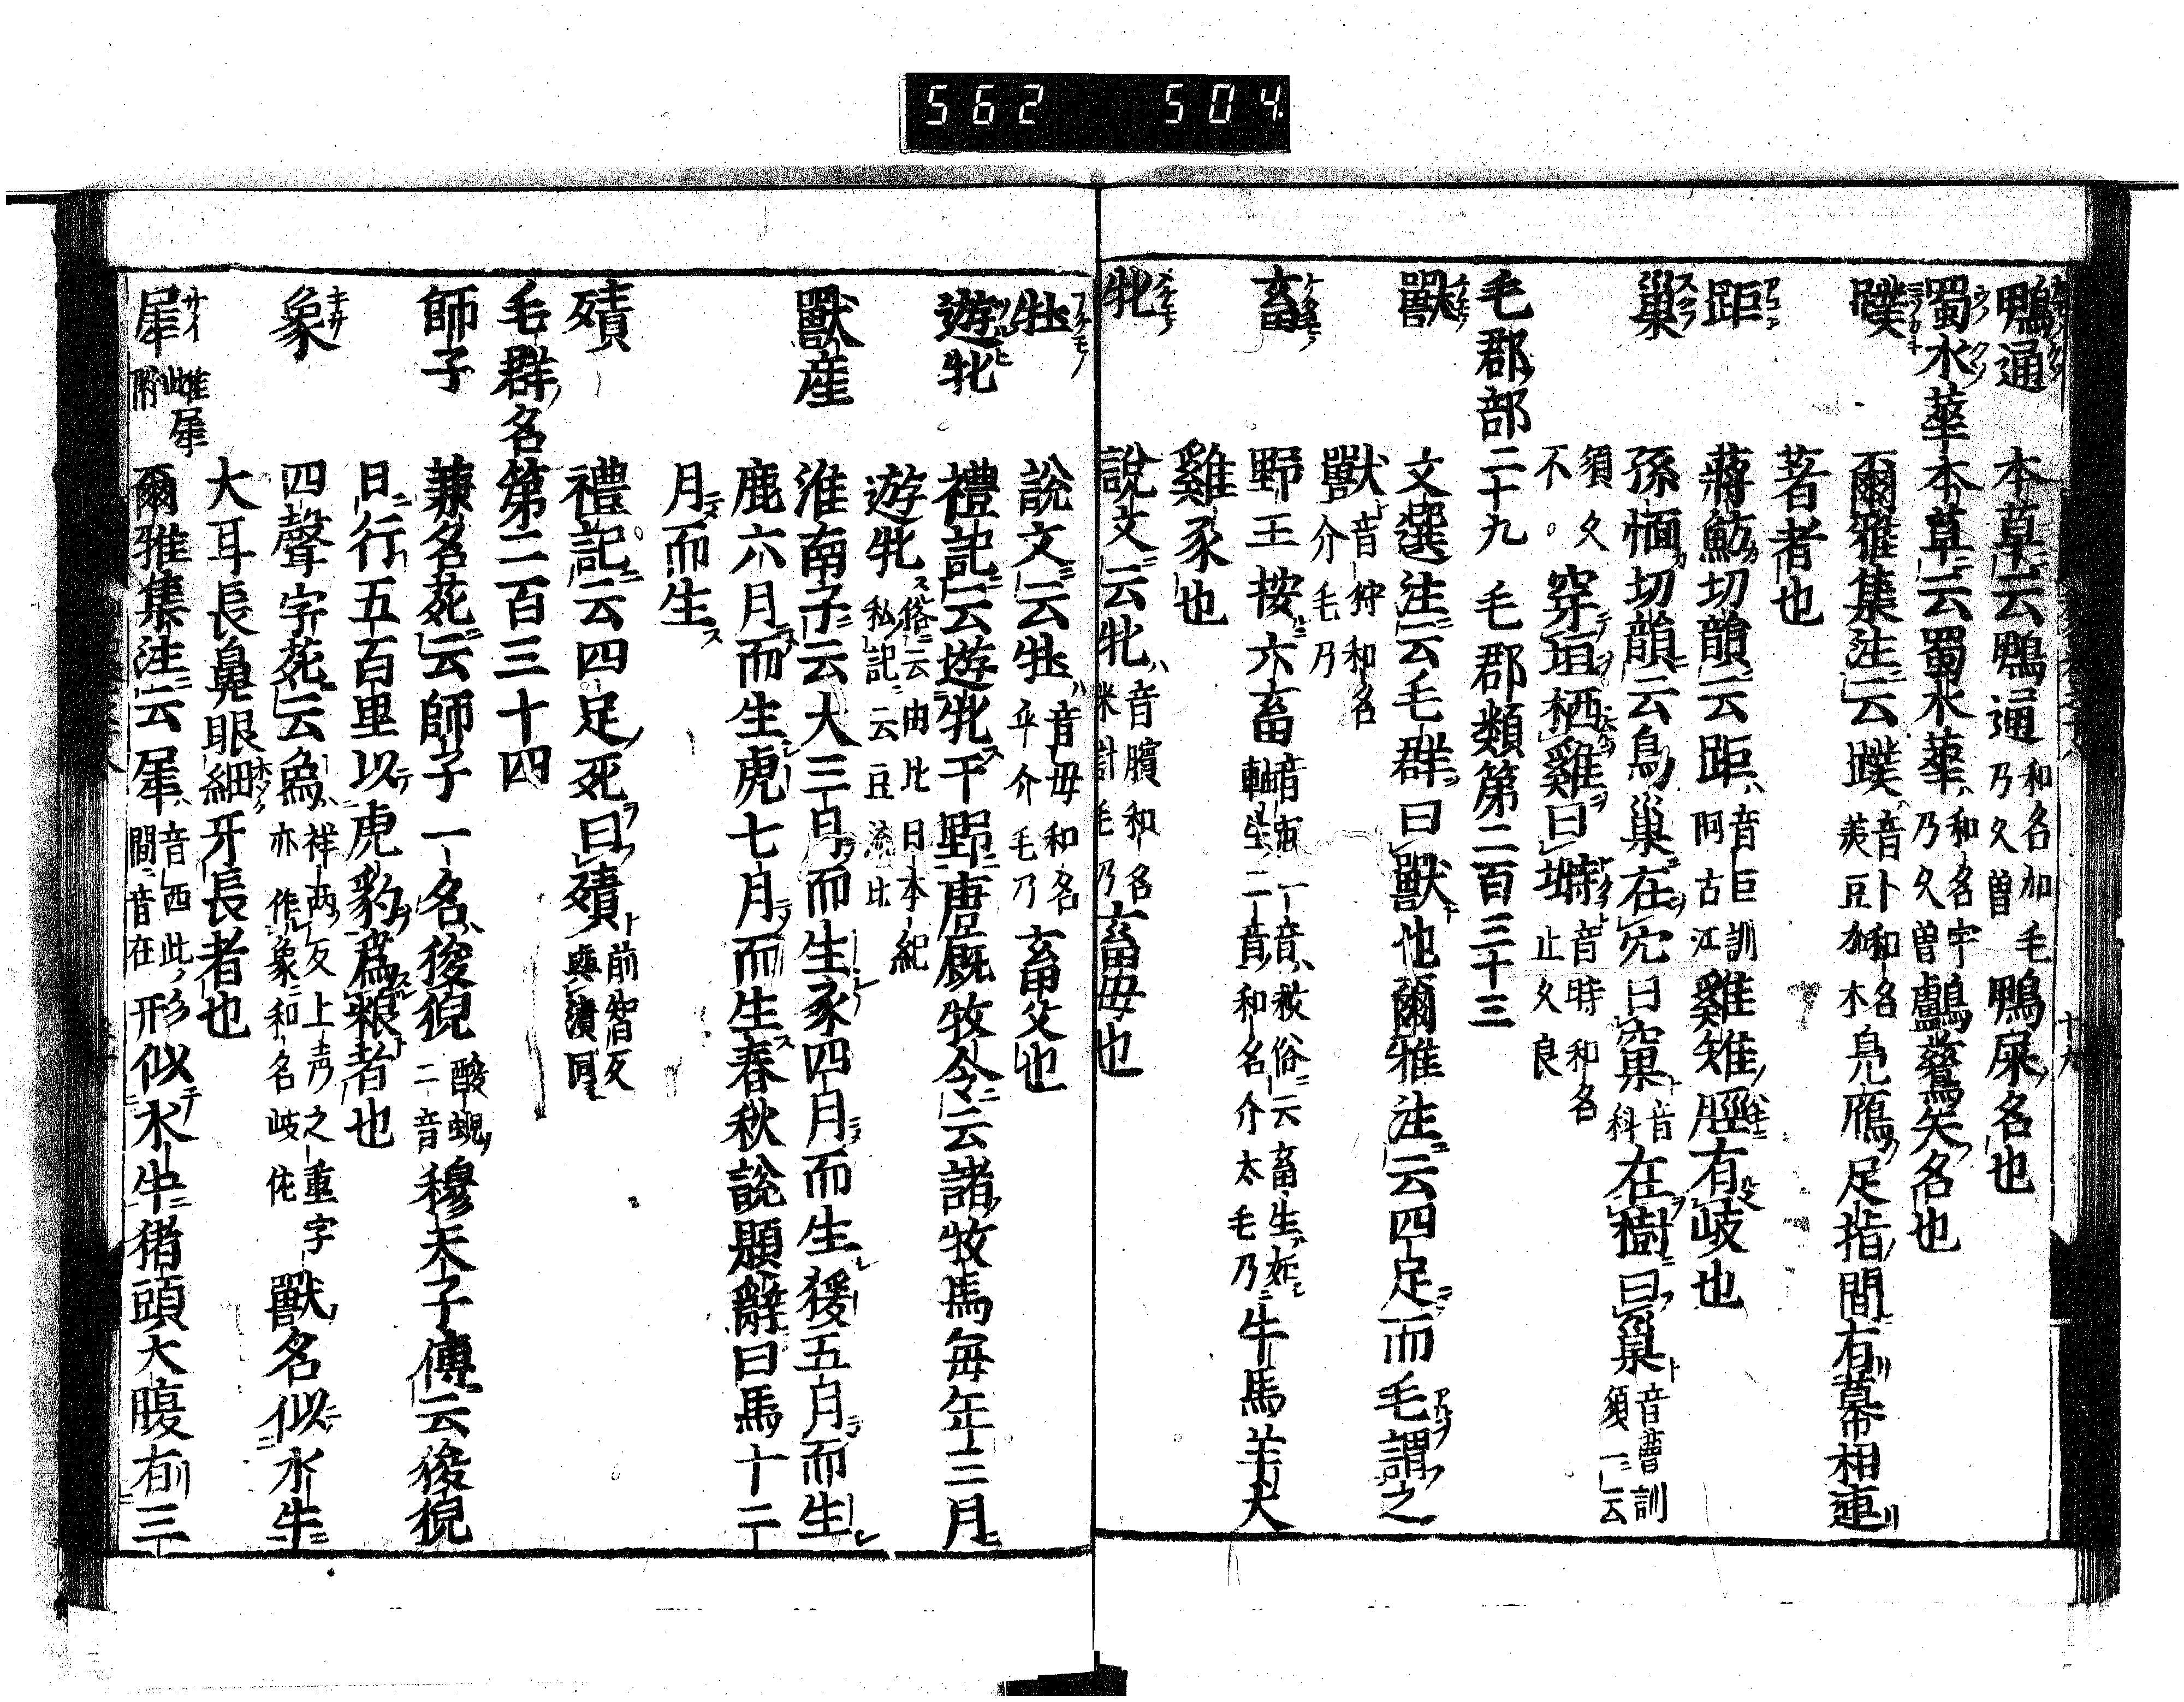 562 504
鴨通 本草云鴨通 和名加毛乃久曽 鴨屎名也
蜀水華 本草云蜀水華 和名宇乃久曽 鸕鷀矢名也
蹼 爾雅集注云蹼 音卜和名美豆加木 鳧鴈足指間有幕相連
著者也
距 蔣魴切韻云距 音巨訓阿古江 雞雉脛有岐也
巢 孫愐切韻云鳥巢在穴曰窠 音科 在樹曰巢 音曹訓須一云
須久不 穿垣栖雞曰塒 音時和名止久良
毛郡部二十九 毛郡類第二百三十三
獸 文選注云毛群曰獸也爾雅注云四足而毛謂之
獸 音狩和名介毛乃
畜 野王按六畜 牛馬羊犬
雞豕也
牝 說文云牝 音臏和名米計毛乃 畜母也
牡 說文云牡 音母和名乎介毛乃 畜父也
遊牝 禮記云遊牝于野唐厩牧令云諸牧馬每年三月
遊牝 俗云由比日本紀私記云豆流比
獸産 淮南子云犬三月而生豕四月而生猨五月而生
鹿六月而生虎七月而生春秋說題辭曰馬十二
月而生
殨 禮記云四足死曰殨 前智反與漬同
毛群名第二百三十四
師子 兼名苑云師子一名狻猊 酸蜺二音 穆天子傳云狻猊
日行五百里以虎豹爲粮者也
象 四聲字苑云爲 祥兩反上声之重字亦作象和名岐佐 獸名似水牛
大耳長鼻眼細牙長者也
犀 雌犀附 爾雅集注云犀 音西此間音在 形似水牛猪頭大腹有三